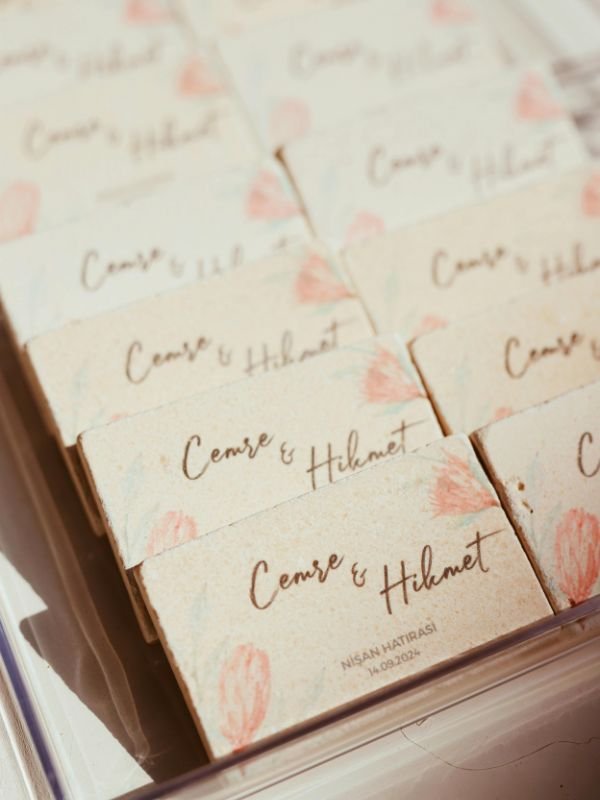 Cemre & Hikmet
Cemre & Hikmet
Cemre & Hikmet
Cemre & Hikmet
Cemre & Hikmet
Cemre &
Cemre & Hikmet
Cemre & Hikmet
Cemre & Hikmet
NİŞAN HATIRASI
14.09.2024